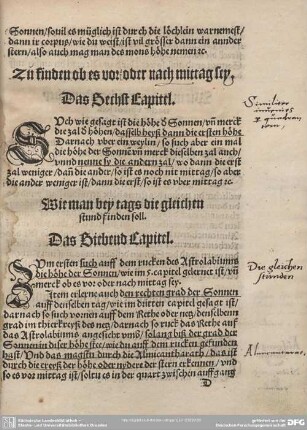 Sonnen/souil es müglich ist durch die löchlein warnemest/
dann ir corpus/wie du weist/ist vil grösser dann ein annder
stern/also auch mag man des mons höhe nemen ꝛc.
Zů finden ob es vor oder nach mittag sey.
Das Sechst Capitel.
Sůch wie gesagt ist die höhe d Sonnen/vñ merck
die zal d höhen/dasselb heyß dann die ersten höhe
Darnach vber ein weylen/so such aber ein mal
die höhe der Sonnē vñ merck dieselben zal auch/
vnnd nenne sy die andern zal/wo dann die erst
zal weniger/dañ die ander/so ist es noch nit mittag/so aber
die ander weniger ist/dann die erst/so ist es vber mittag ꝛc.
Wie man bey tags die gleichen
stund finden soll.
Das Siebend Capitel.
Zum ersten such auff dem rucken des Astrolabiums
die höhe der Sonnen/wie im 5. capitel gelernet ist/vñ
merck ob es vor oder nach mittag sey.
Item erlerne auch den rechten grad der Sonnen
auff derselben tag/wie im
capitel gesagt ist/
darnach so such vornen auff dem Rethe oder netz/denselbenn
grad im thierkreyß des netz/darnach so ruck das Rethe auff
das Astrolabiums angesicht
/solang biß der grad der
Sonnen in diser höhe stee/wie du auff dem rucken gefunden
hast/Vnd das magstu durch die Almicantharath/das ist
durch die kreyß der höhe oder nydere der stern erkennen/vnd
so es vor mittag ist/soltu es in der quart zwischen auffgang
D
Die gleichen
stunden